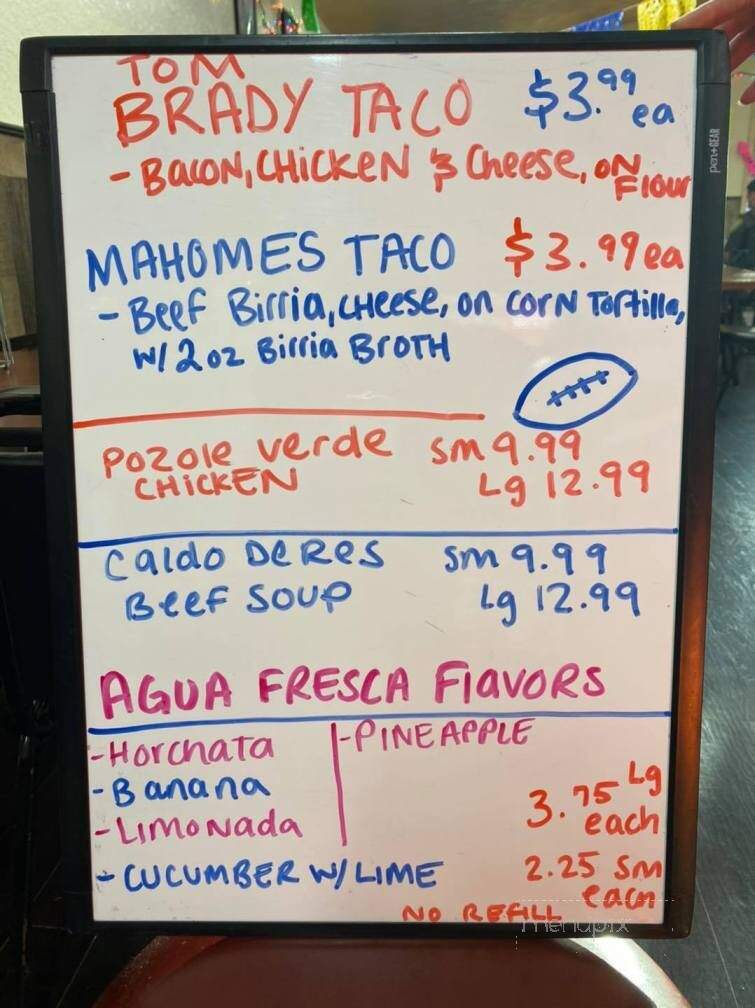 TOM
BRADY TACO $3.99 ea
- Bacon, CHICKEN & Cheese, ON
Flour
MAHOMES TACO $3.99 ea
- Beef Birria, CHeese, on corn Tortilla,
w/ 2 oz Birria BROTH
Pozole verde sm 9.99
CHICKEN Lg 12.99
Caldo De Res sm 9.99
Beef Soup Lg 12.99
AGUA FRESCA FlavorS
- Horchata - PINEAPPLE
- Banana
- Limonada
3.75 Lg
each
- CUCUMBER W/ LIME 2.25 sm
each
NO REFILL
pen+GEAR
menupix